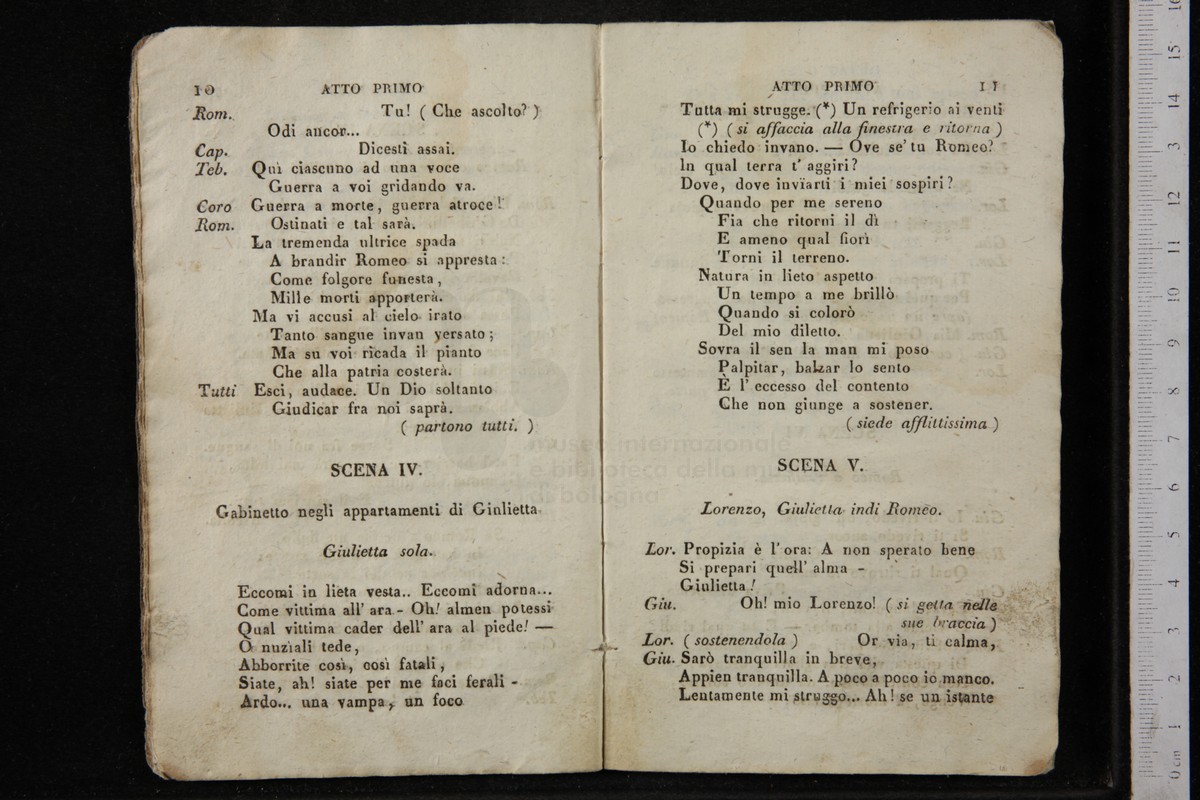 10 ATTO PRIMO
Rom. Tu! ( Che ascolto? )
Odi ancor...
Cap. Dicesti assai.
Teb. Quì ciascuno ad una voce
Guerra a voi gridando va.
Coro Guerra a morte, guerra atroce!
Rom. Ostinati e tal sarà.
La tremenda ultrice spada
A brandir Romeo si appresta:
Come folgore funesta,
Mille morti apporterà.
Ma vi accusi al cielo irato
Tanto sangue invan versato;
Ma su voi ricada il pianto
Che alla patria costerà.
Tutti Esci, audace. Un Dio soltanto
Giudicar fra noi saprà.
( partono tutti. )
SCENA IV.
Gabinetto negli appartamenti di Giulietta.
Giulietta sola.
Eccomi in lieta vesta.. Eccomi adorna...
Come vittima all' ara - Oh! almen potessi
Qual vittima cader dell' ara al piede! —
O nuziali tede,
Abborrite così, così fatali,
Siate, ah! siate per me faci ferali -
Ardo... una vampa, un foco
ATTO PRIMO 11
Tutta mi strugge. (*) Un refrigerio ai venti
(*) ( si affaccia alla finestra e ritorna )
Io chiedo invano. — Ove se' tu Romeo?
In qual terra t' aggiri?
Dove, dove invïarti i miei sospiri?
Quando per me sereno
Fia che ritorni il dì
E ameno qual fiorì
Torni il terreno.
Natura in lieto aspetto
Un tempo a me brillò
Quando si colorò
Del mio diletto.
Sovra il sen la man mi poso
Palpitar, balzar lo sento
È l' eccesso del contento
Che non giunge a sostener.
( siede afflittissima )
SCENA V.
Lorenzo, Giulietta indi Romeo.
Lor. Propizia è l' ora: A non sperato bene
Si prepari quell' alma -
Giulietta!
Giu. Oh! mio Lorenzo! ( si getta nelle
sue braccia )
Lor. ( sostenendola ) Or via, ti calma,
Giu. Sarò tranquilla in breve,
Appien tranquilla. A poco a poco io manco.
Lentamente mi struggo... Ah! se un istante
museo internazionale
e biblioteca della mu
di bologna
0 cm 1 2 3 4 5 6 7 8 9 10 11 12 13 14 15 16